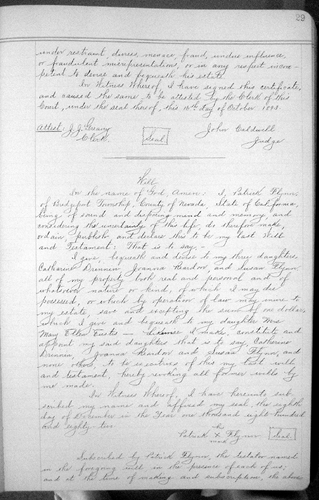 29
under restraint, duress, menace, fraud, undue influence,
or fraudulent misrepresentations, or in any respect incom-
petent to devise and bequeath his estate.
In Witness Whereof, I have signed this certificate,
and caused the same to be attested by the Clerk of this
Court, under the seal thereof, this 16th day of October 1893.
Attest: J. J. Greany
Clerk
Seal
John Caldwell
Judge
Will
In the name of God, Amen. I, Patrick Flynn,
of Bridgeport Township, County of Nevada, State of California,
being of sound and disposing mind and memory, and
considering the uncertainty of this life, do therefore make,
ordain, publish and declare this to be my last Will
and Testament: That is to say,
I give, bequeath and devise to my three daughters,
Catharine Brennan, Joanna Reardon, and Susan Flynn,
all of my property, both real and personal and of
whatever nature or kind, of which I may die
possessed, or which by operation of law may come to
my estate, save and excepting the sum of one dollar,
which I give and bequeath to my daughter Mrs
Mary Ellen I likewise make, constitute and
appoint my said daughters that is to say, Catharine
Brennan, Joanna Reardon and Susan Flynn, and
none others, to be executors of this my last will
and testament, hereby revoking all former wills by
me made.
In Witness Whereof, I have hereunto sub-
scribed my name and affixed my seal, this eighth
day of December in the Year one thousand eight hundred
and eighty two
his
Patrick X Flynn Seal
mark
Subscribed by Patrick Flynn, the testator named
in the foregoing will in the presence of each of us,
and at the time of making said subscription, the above